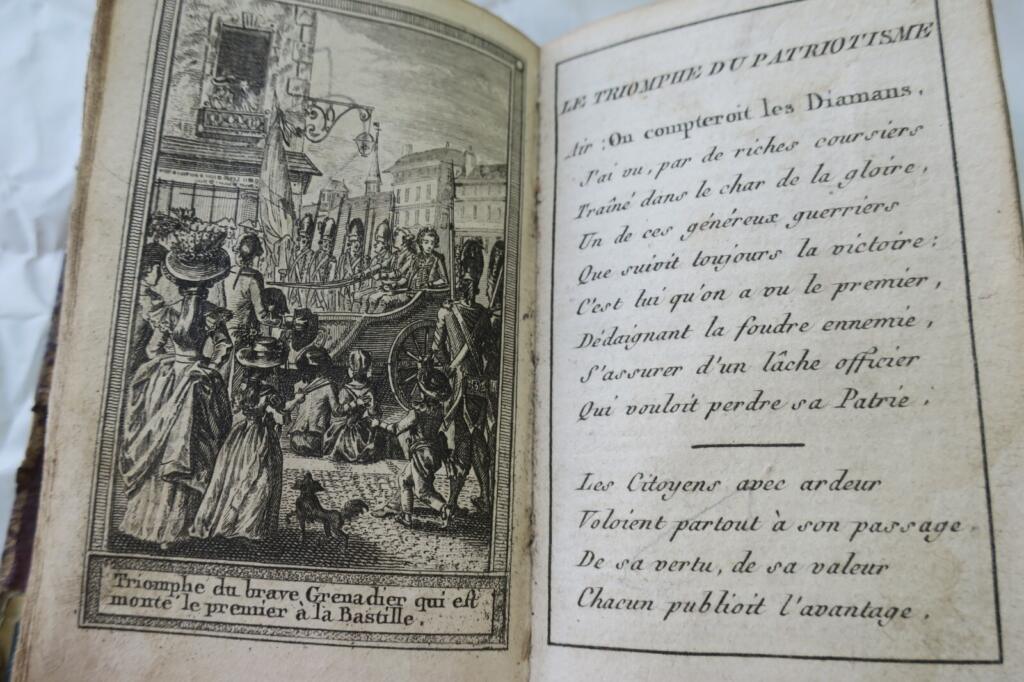 Triomphe du brave Grenadier qui est
monté le premier à la Bastille.
LE TRIOMPHE DU PATRIOTISME
Air : On compteroit les Diamans,
J'ai vu, par de riches coursiers
Traîné dans le char de la gloire,
Un de ces généreux guerriers
Que suivit toujours la victoire :
C'est lui qu'on a vu le premier,
Dédaignant la foudre ennemie,
S'assurer d'un lâche officier
Qui vouloit perdre sa Patrie.
Les Citoyens avec ardeur
Voloient partout à son passage
De sa vertu, de sa valeur
Chacun publioit l'avantage.